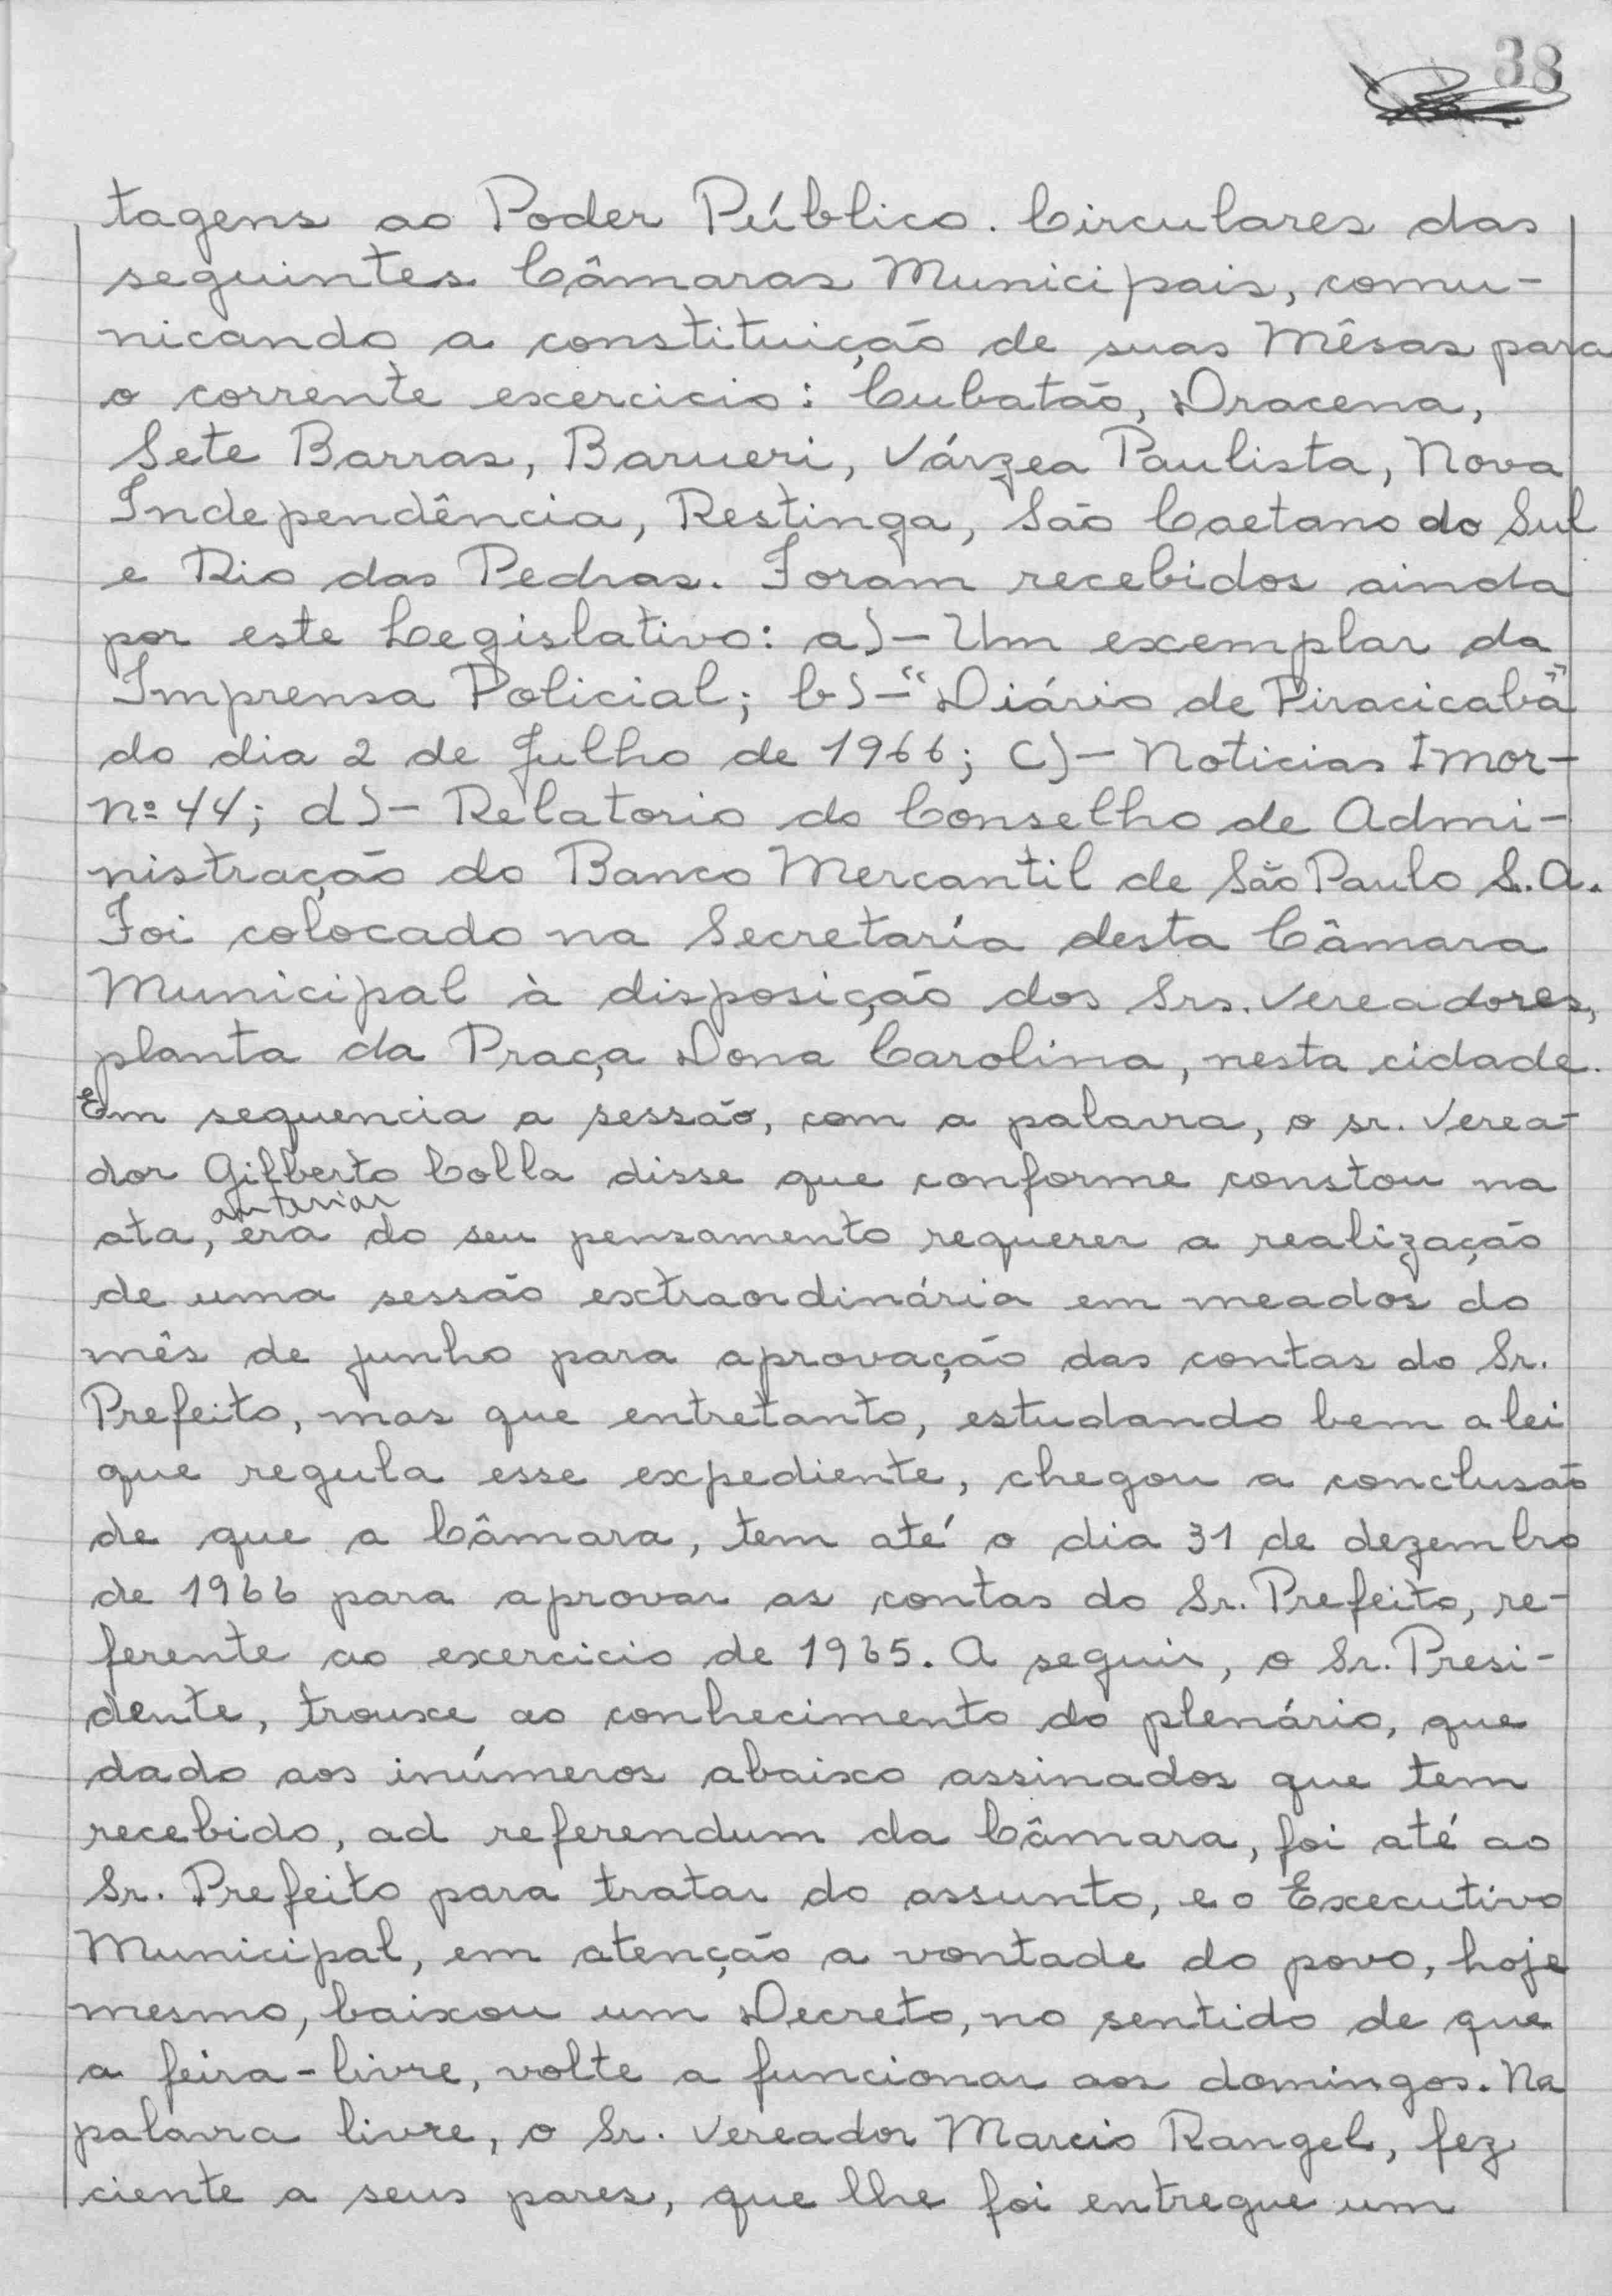 38
tagens ao Poder Público. Circulares das
seguintes Câmaras Municipais, comu-
nicando a constituição de suas Mêsas para
o corrente exercicio: Cubatão, Dracena,
Sete Barras, Barueri, Várzea Paulista, Nova
Independência, Restinga, São Caetano do Sul
e Rio das Pedras. Foram recebidos ainda
por este Legislativo: a)- Um exemplar da
Imprensa Policial; b)-"Diário de Piracicaba"
do dia 2 de Julho de 1966; C)- Noticias Imor-
nº 44; d)- Relatorio do Conselho de Admi-
nistração do Banco Mercantil de São Paulo S.A.
Foi colocado na Secretaría desta Câmara
Municipal à disposição dos Srs. Vereadores,
planta da Praça Dona Carolina, nesta cidade.
Em sequencia a sessão, com a palavra, o sr. Verea-
dor Gilberto Colla disse que conforme constou na
anterior
ata, era do seu pensamento requerer a realização
de uma sessão extraordinária em meados do
mês de junho para aprovação das contas do Sr.
Prefeito, mas que entretanto, estudando bem a lei
que regula esse expediente, chegou a conclusão
de que a Câmara, tem até o dia 31 de dezembro
de 1966 para aprovar as contas do Sr. Prefeito, re-
ferente ao exercicio de 1965. A seguir, o Sr. Presi-
dente, trouxe ao conhecimento do plenário, que
dado aos inúmeros abaixo assinados que tem
recebido, ad referendum da Câmara, foi até ao
Sr. Prefeito para tratar do assunto, e o Executivo
Municipal, em atenção a vontade do povo, hoje
mesmo, baixou um Decreto, no sentido de que
a feira-livre, volte a funcionar aos domingos. Na
palavra livre, o Sr. Vereador Marcio Rangel, fez
ciente a seus pares, que lhe foi entregue um